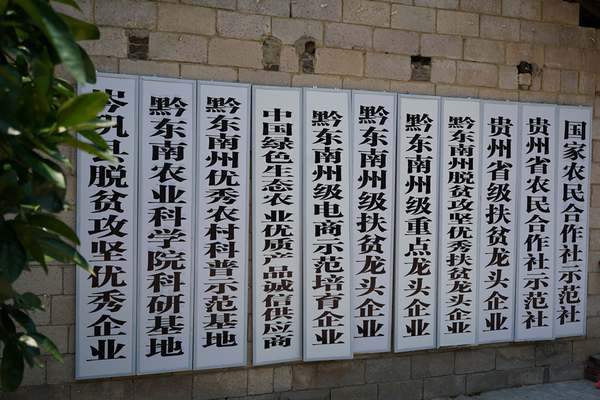 岑巩县脱贫攻坚优秀企业
黔东南农业科学院科研基地
黔东南州优秀农村科普示范基地
中国绿色生态农业优质产品诚信供应商
黔东南州级电商示范培育企业
黔东南州级扶贫龙头企业
黔东南州级重点龙头企业
黔东南州脱贫攻坚优秀扶贫龙头企业
贵州省级扶贫龙头企业
贵州省农民合作社示范社
国家农民合作社示范社